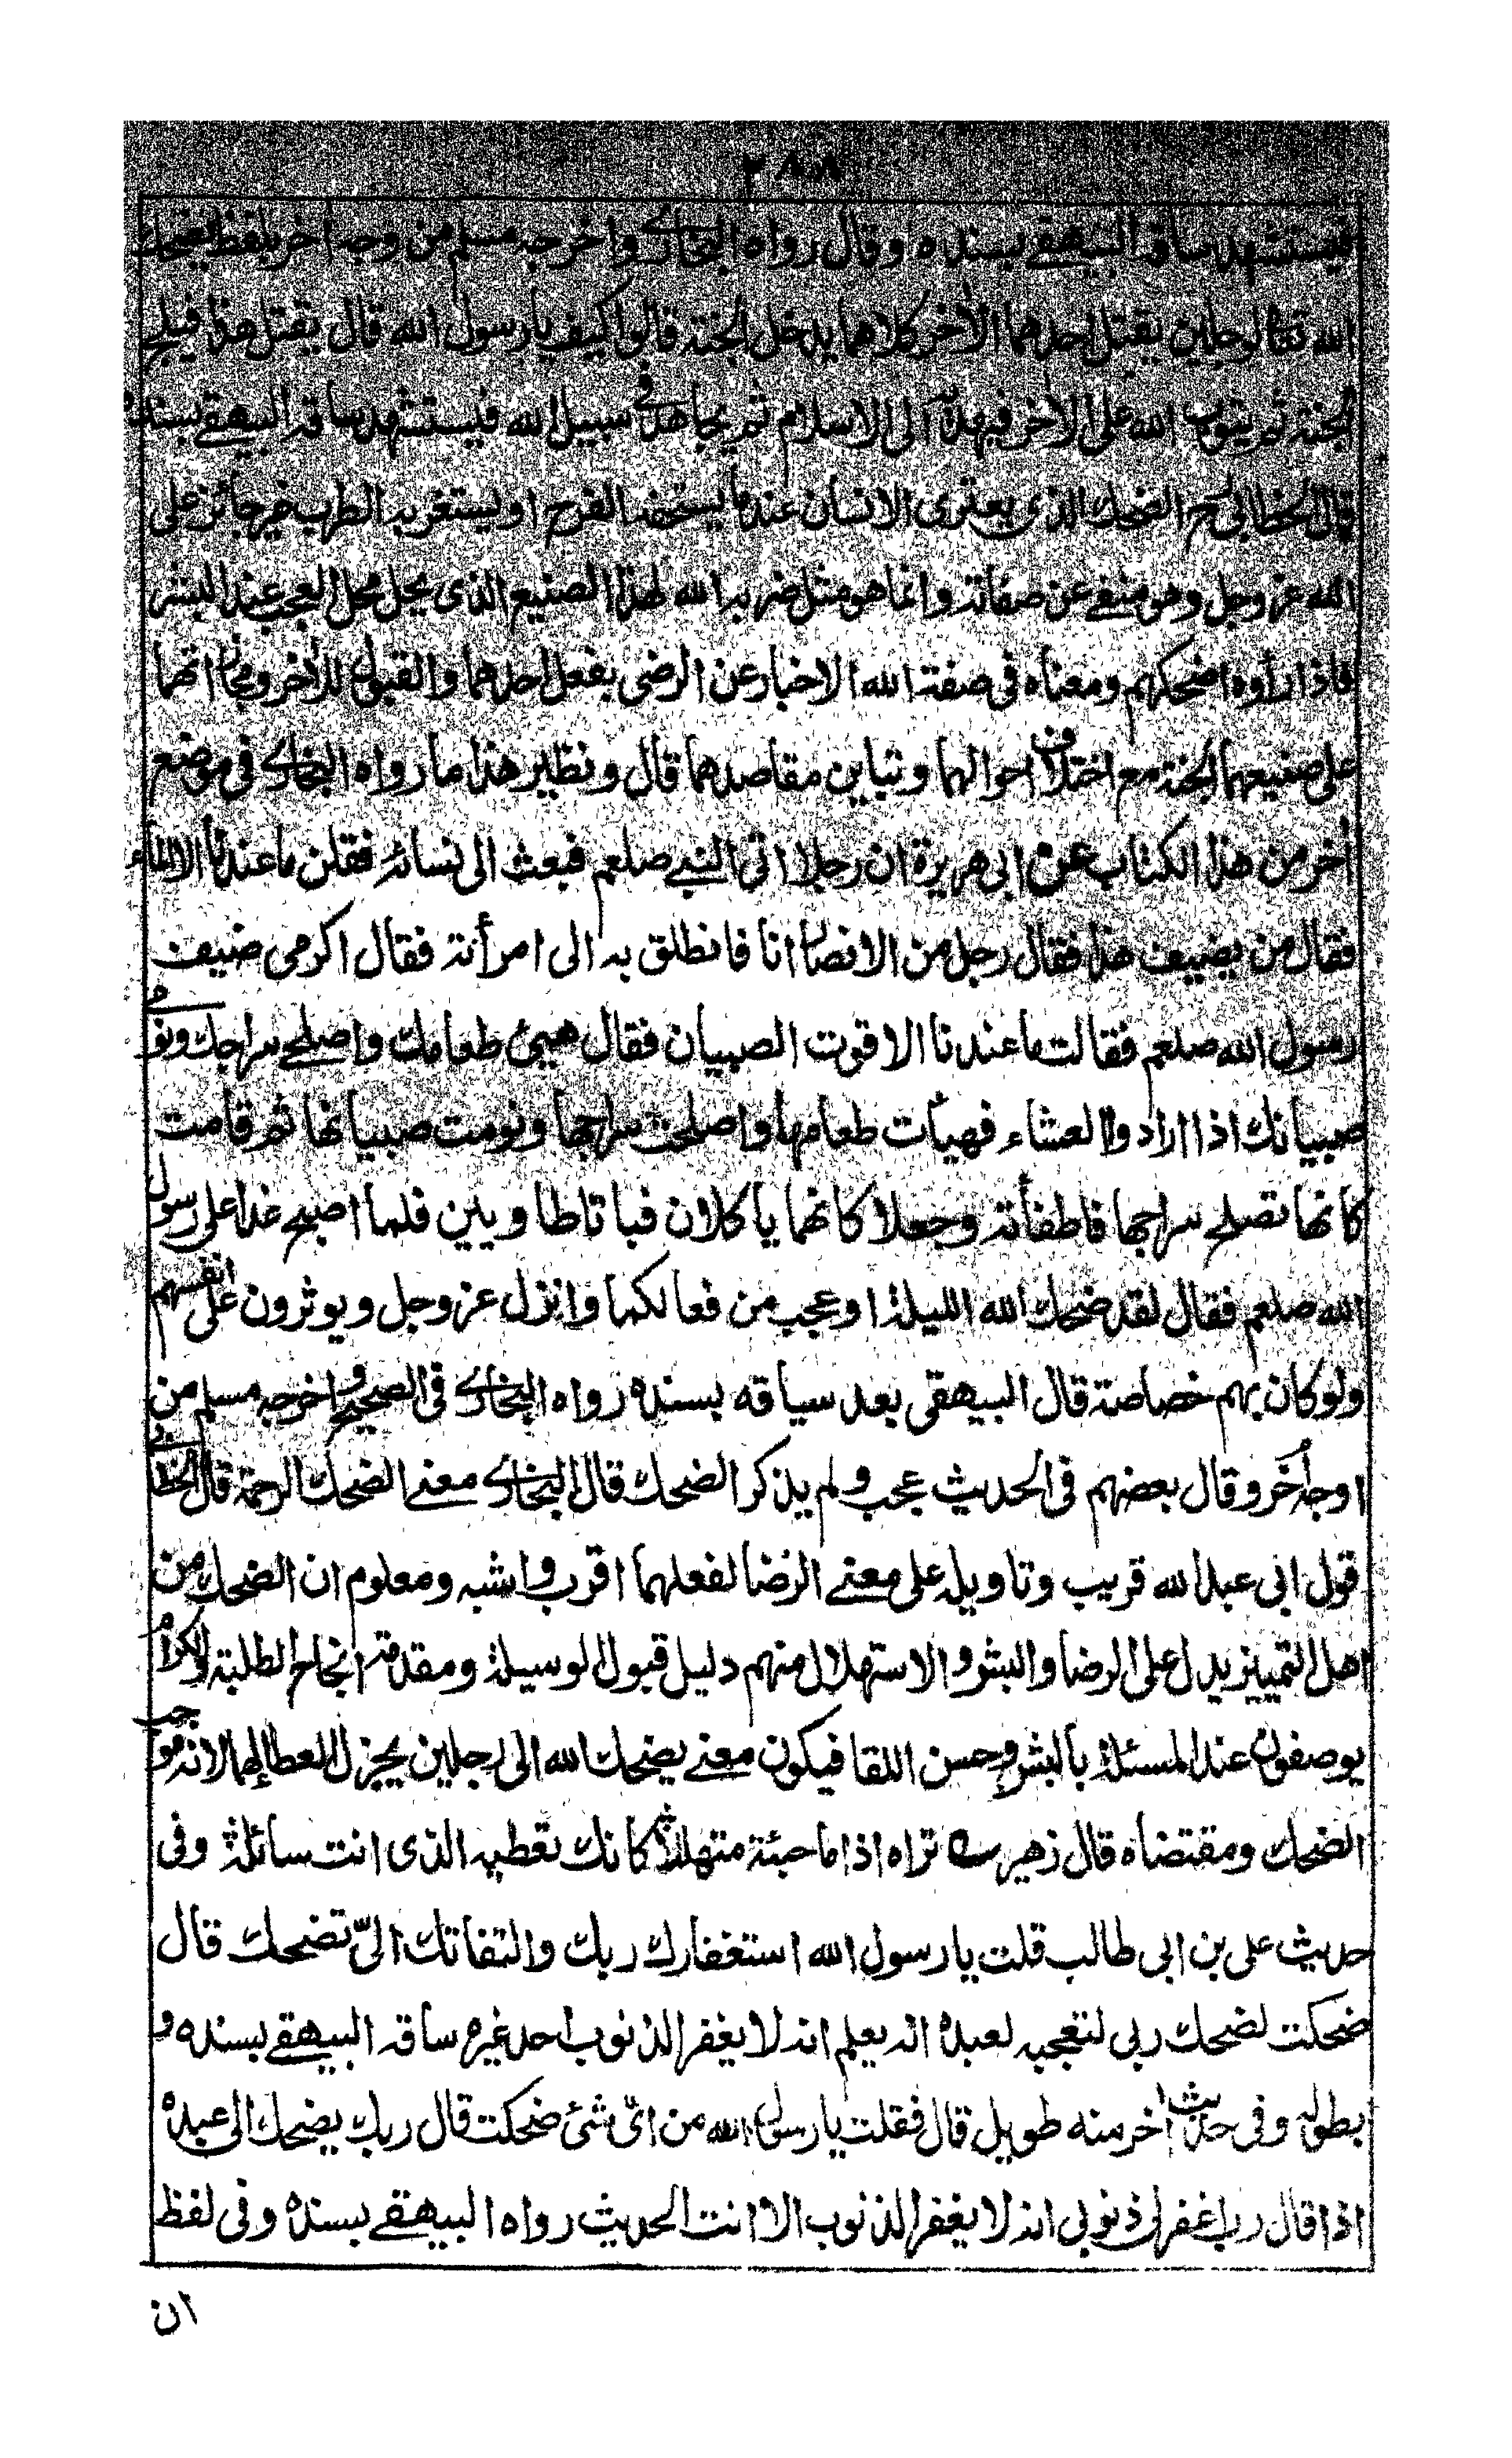 ٢٨٨
فيستشهد ساقه البيهقے بسنده وقال رواه البخارے واخرجه مسلم من وجه اخر بلفظ يضحك
الله تعالى لرجلين يقتل احدهما الاخر كلاهما يدخل الجنة قالوا كيف يا رسول الله قال يقتل هذا فيلج
الجنة ثم يتوب الله على الاخر فيهديه الى الاسلام ثم يجاهد في سبيل الله فيستشهد ساقه البيهقے بسنده
قال الخطابي رح الضحك الذى يعترى الانسان عندما يستخفه الفرح او يستفزه الطرب غير جائز على
الله عز وجل وهو منفے عن صفاته وانما هو مثل ضربه الله لهذا الصنيع الذى يحل محل العجب عند البشر
فاذا رأوه اضحكهم ومعناه فى صفة الله الاخبار عن الرضى بفعل احدهما والقبول للأخر ومجازاتهما
على صنيعهما الجنة مع اختلاف احوالهما وتباين مقاصدهما قال ونظير هذا ما رواه البخارے فى موضع
أخر من هذا الكتاب عن ابى هريرة ان رجلا اتى النبے صلعم فبعث الى نسائه فقلن ما عندنا الا الماء
فقال من يضيف هذا فقال رجل من الانصار انا فانطلق به الى امرأته فقال اكرمى ضيف
رسول الله صلعم فقالت ما عندنا الا قوت الصبيان فقال هيئ طعامك واصلحے سراجك ونومے
صبيانك اذا ارادوا العشاء فهيأت طعامها واصلحت سراجها ونومت صبيانها ثم قامت
كانها تصلح سراجها فاطفأته وجعلا كانهما ياكلان فباتا طاويين فلما اصبح غدا على رسول
الله صلعم فقال لقد ضحك الله الليلة او عجب من فعالكما وانزل عز وجل ويوثرون على انفسهم
ولو كان بهم خصاصة قال البيهقى بعد سياقه بسنده رواه البخارے فى الصحيح واخرجه مسلم من
اوجه أخر وقال بعضهم فى الحديث عجب ولم يذكر الضحك قال البخارے معنے الضحك الرحمة قال الخطابے
قول ابى عبد الله قريب وتاويله على معنے الرضا لفعلهما اقرب واشبه ومعلوم ان الضحك من
اهل التمييز يدل على الرضا والبشر والاستهلال منهم دليل قبول الوسيلة ومقدمة انجاح الطلبة والكرام
يوصفون عند المسئلة بالبشر وحسن اللقا فيكون معنے يضحك الله الى رجلين يجزل العطا لهما لانه موجب
الضحك ومقتضاه قال زهير ؎ تراه اذا ما جئته متهللا كانك تعطيه الذى انت سائله وفى
حديث على بن ابى طالب قلت يا رسول الله استغفارك ربك والتفاتك الىّ تضحك قال
ضحكت لضحك ربى لتعجبه لعبده انه يعلم انه لا يغفر الذنوب احد غيره ساقه البيهقے بسنده و
بطوله وفى حديث اخر منه طويل قال فقلت يا رسول الله من اىّ شئ ضحكت قال ربك يضحك الى عبده
اذا قال رب اغفر لى ذنوبى انه لا يغفر الذنوب الا انت الحديث رواه البيهقے بسنده وفى لفظ
ان